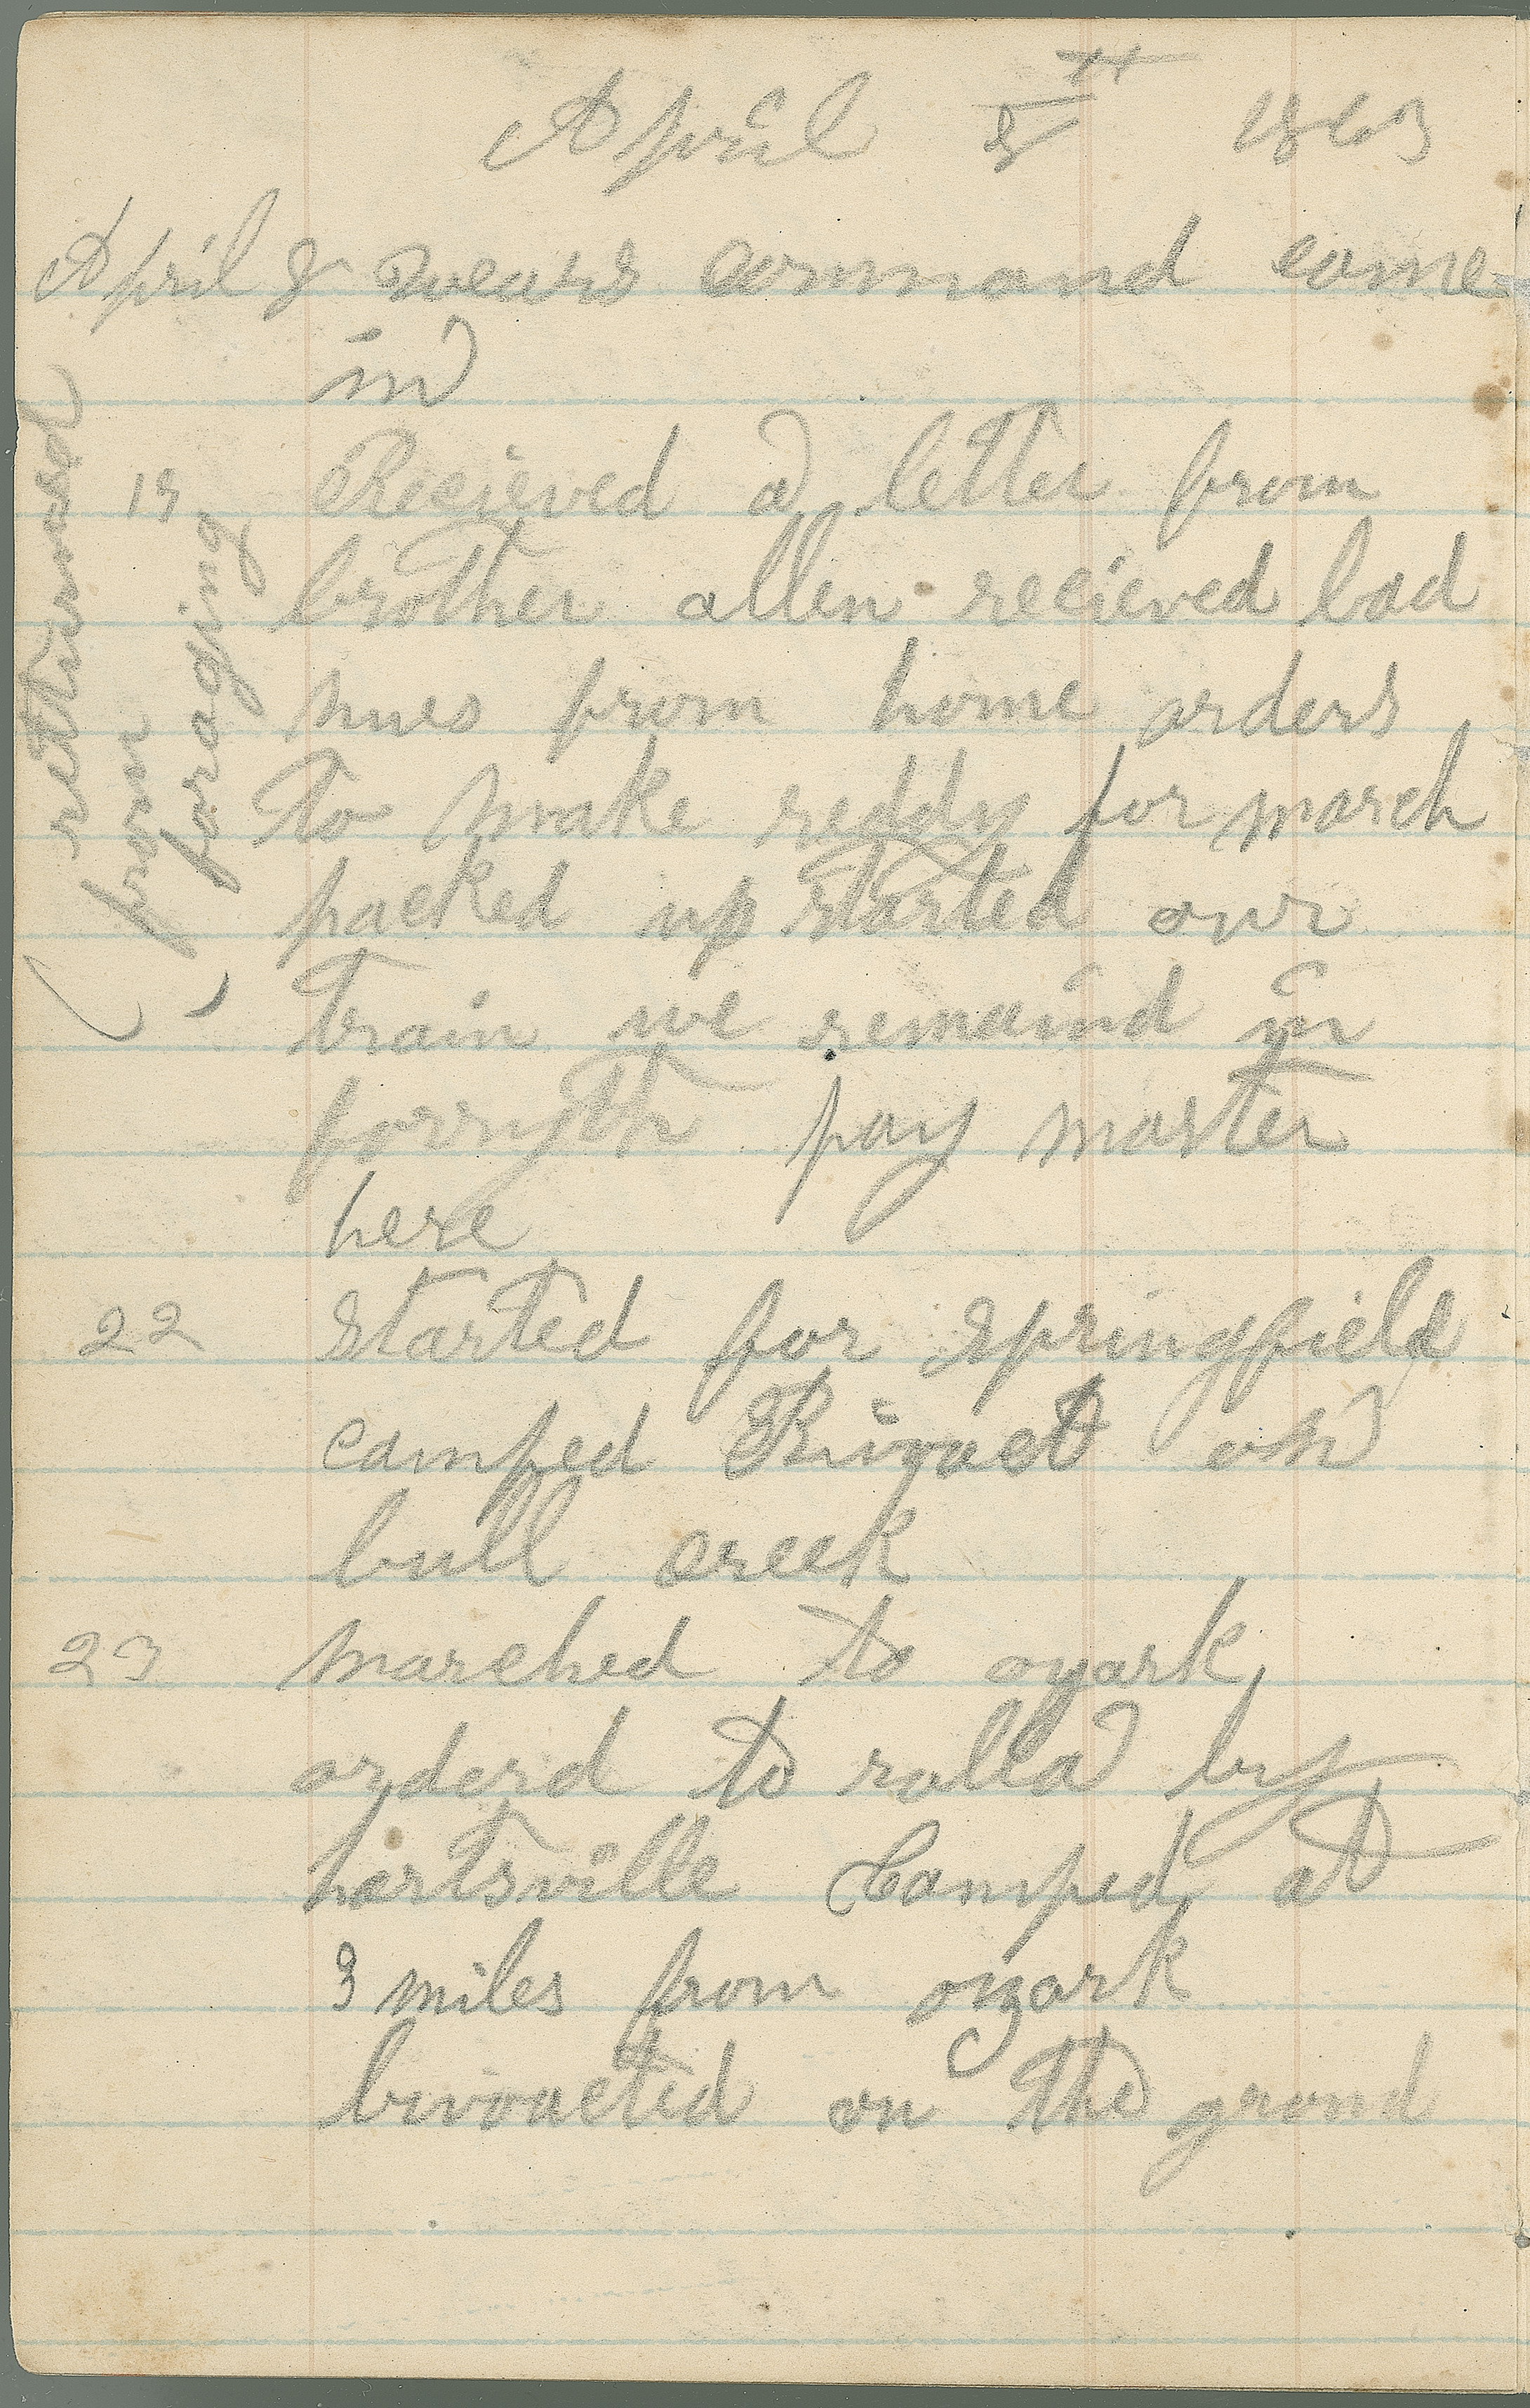 April 8th 1863
April 8 wears command come
in
19 Recieved a letter from
brother allen recieved bad
nues from home orders
to make reddy for march
packed up started our
train we remaind in
forsyth pay master
here
22 started for springfield
camped Bivoact on
bull creek
23 marched to ozark
orderd to rolla by
hartsville Camped at
3 miles from ozark
bivoacted on the grond
(returned
from
foraging)